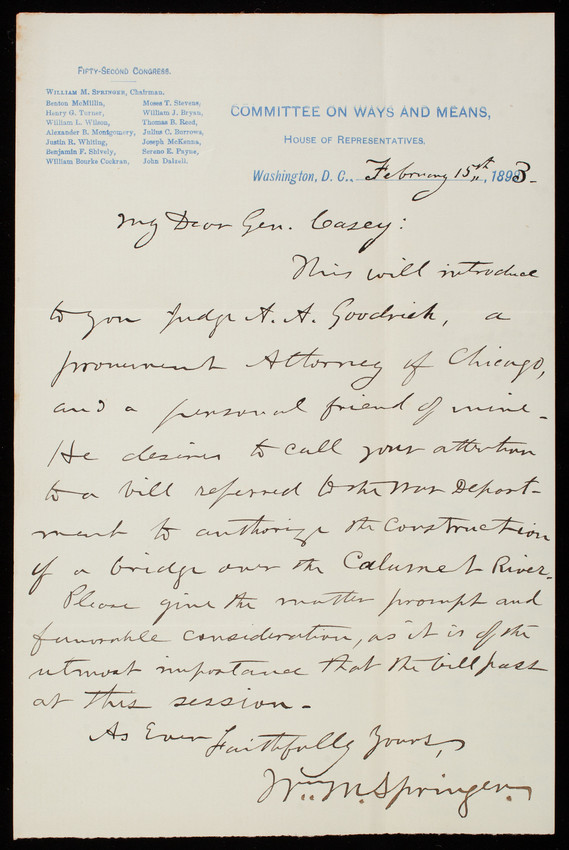 FIFTY-SECOND CONGRESS.
WILLIAM M. SPRINGER, Chairman.
Benton McMillin,
Henry G. Turner,
William L. Wilson,
Alexander B. Montgomery,
Justin R. Whiting,
Benjamin F. Shively,
William Bourke Cockran,
Moses T. Stevens,
William J. Bryan,
Thomas B. Reed,
Julius C. Burrows,
Joseph McKenna,
Sereno E. Payne,
John Dalzell.
COMMITTEE ON WAYS AND MEANS,
HOUSE OF REPRESENTATIVES.
Washington, D. C., February 15th, 1893.
My Dear Gen. Casey:
This will introduce
to you Judge A. A. Goodrich, a
prominent Attorney of Chicago,
and a personal friend of mine.
He desires to call your attention
to a bill referred to the War Depart-
ment to authorize the construction
of a bridge over the Calumet River.
Please give the matter prompt and
favorable consideration, as it is of the
utmost importance that the bill pass
at this session.
As Ever Faithfully Yours,
Wm. M. Springer.